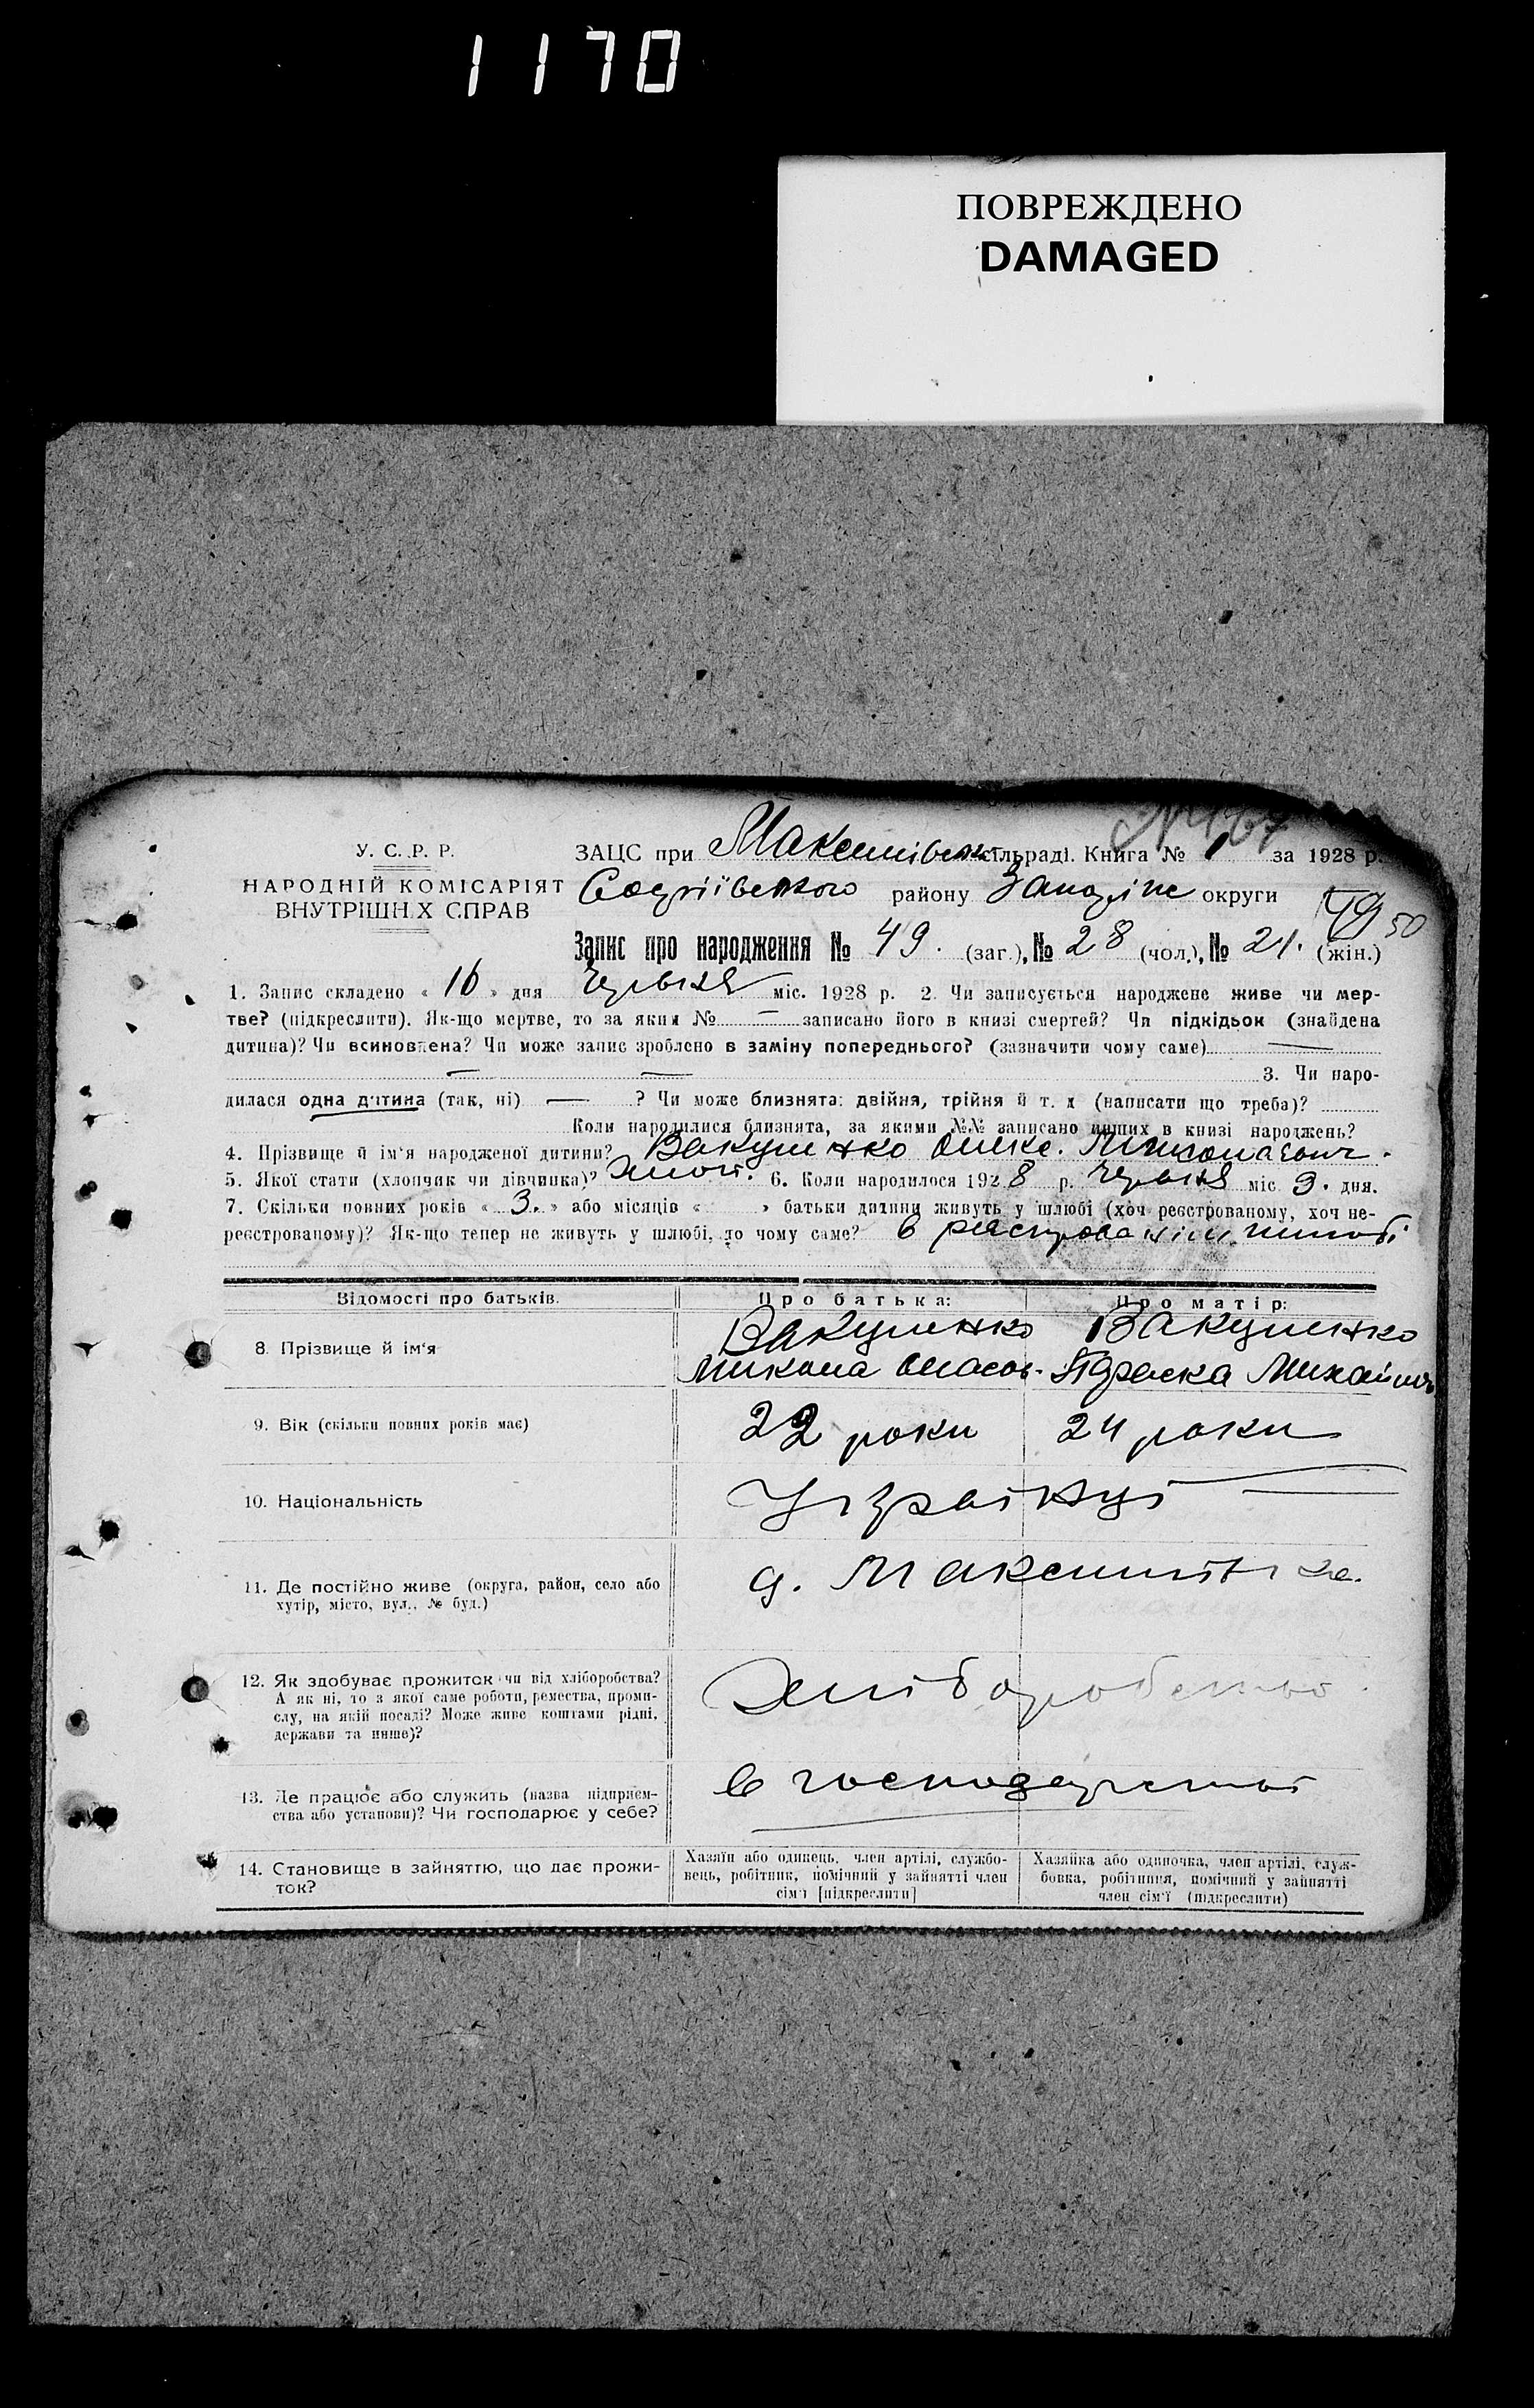 1170
ПОВРЕЖДЕНО
DAMAGED
У. С. Р. Р.
НАРОДНІЙ КОМІСАРІЯТ
ВНУТРІШН.Х СПРАВ
ЗАЦС при Максимівськ сільраді. Книга № 1 за 1928 р.
Софіївського району Запоріж округи
49 50
Запис про народження № 49. (заг.), № 28 (чол.), № 21. (жін.)
1. Запис складено « 16 » дня Червня міс. 1928 р. 2. Чи записується народжене живе чи мер-
тве? (підкреслити). Як-що мертве, то за яким № — записано його в книзі смертей? Чи підкідьок (знайдена
дитина)? Чи всиновлена? Чи може запис зроблено в заміну попереднього? (зазначити чому саме) —
— — 3. Чи наро-
дилася одна дитина (так, ні) — ? Чи може близнята: двійня, трійня й т. д (написати що треба)?
Коли народилися близнята, за якими №№ записано инших в книзі народжень?
4. Прізвище й ім'я народженої дитини? Вакуленко Олекс. Миколаєвич.
5. Якої стати (хлопчик чи дівчинка)? Хлоп. 6. Коли народилося 1928 р. Червня міс 3. дня.
7. Скільки повних років « 3. » або місяців « » батьки дитини живуть у шлюбі (хоч реєстрованому, хоч не-
реєстрованому)? Як-що тепер не живуть у шлюбі, то чому саме? в реєстрованім шлюбі
Відомості про батьків. Про батька: Про матір:
8. Прізвище й ім'я Вакуленко Вакуленко
Микола Опасов. Параска Михайлів
9. Вік (скільки повних років має) 22 роки 24 роки
10. Національність Українці
11. Де постійно живе (округа, район, село або
хутір, місто, вул., № буд.) с. Максимівка.
12. Як здобуває прожиток чи від хліборобства?
А як ні, то з якої саме роботи, ремества, проми-
слу, на якій посаді? Може живе коштами рідні,
держави та инше)? Хліборобство
13. Де працює або служить (назва підприєм-
ства або установи)? Чи господарює у себе? в господарстві
14. Становище в зайняттю, що дає прожи-
ток?
Хазяїн або одинець, член артілі, службо-
вець, робітник, помічний у зайнятті член
сім'ї [підкреслити]
Хазяйка або одиночка, член артілі, служ-
бовка, робітниця, помічний у зайнятті
член сім'ї (підкреслити)